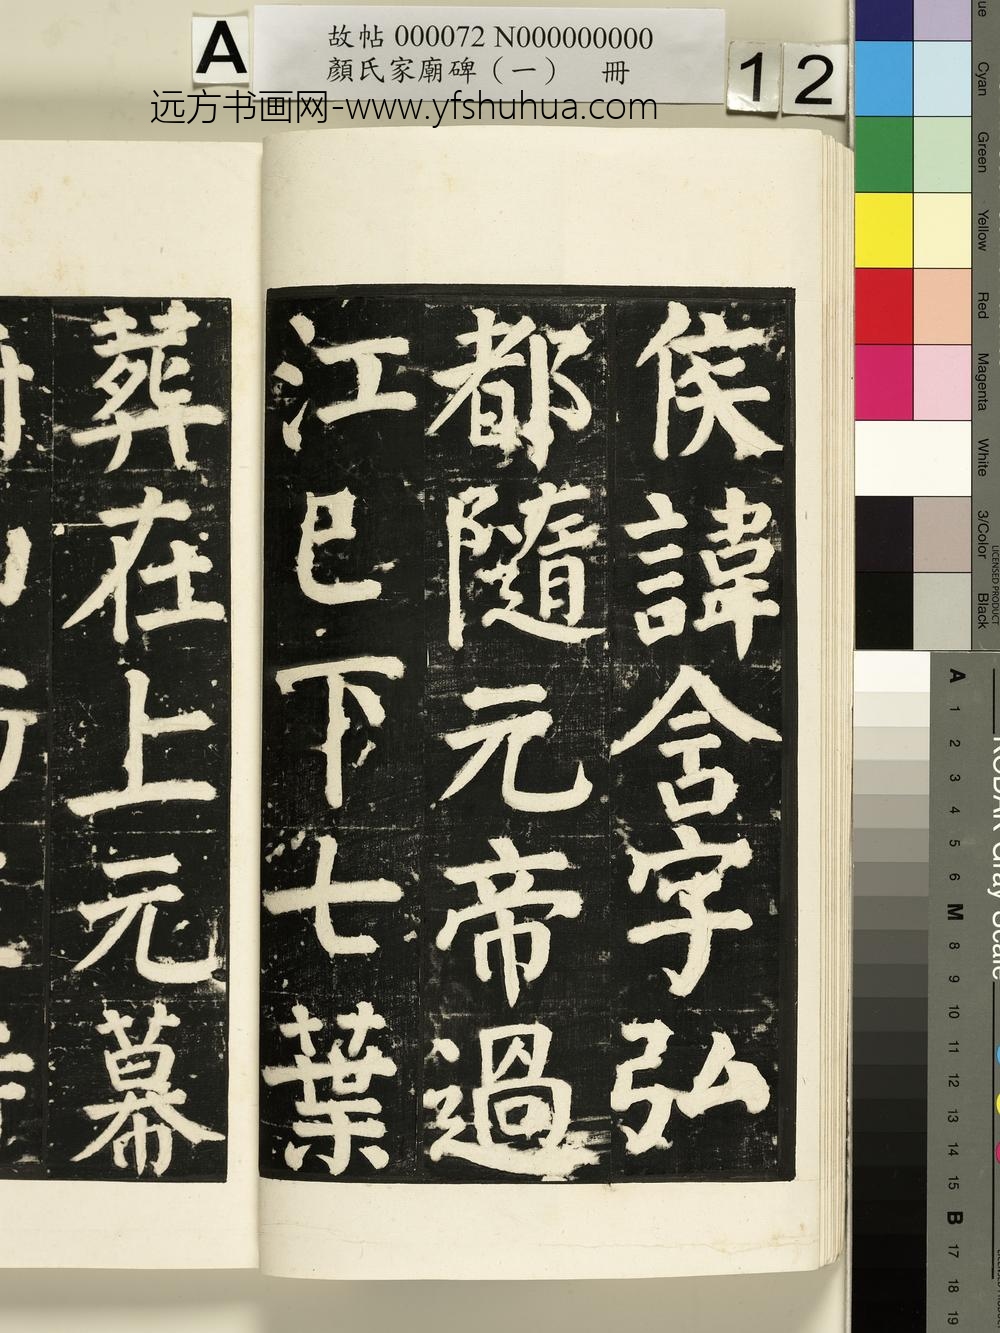 A
故帖 000072 N000000000
顏氏家廟碑（一） 冊
12
远方书画网-www.yfshuhua.com
侯諱含字弘
都隨元帝過
江巳下七葉
葬在上元幕
Cyan
Green
Yellow
Red
Magenta
White
3/Color
Black
LICENSED PRODUCT
A
1
2
3
4
5
6
M
8
9
10
11
12
13
14
15
B
17
18
19
KODAK Gray Scale